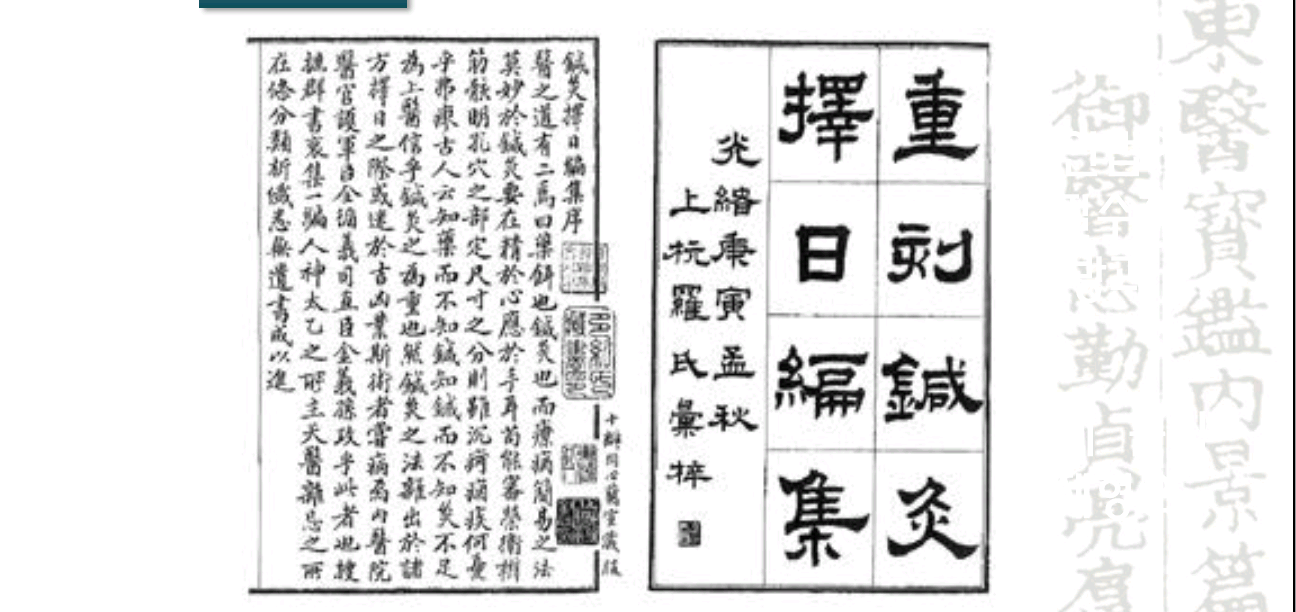 東醫寶鑑內景篇
御醫忠勤貞亮扈
重刻鍼灸
擇日編集
光緒庚寅孟秋
上杭羅氏彙梓
十瓣同心蘭室藏版
鍼灸擇日編集序
醫之道有二焉曰藥餌也鍼灸也而療病簡易之法
莫妙於鍼灸要在精於心應於手耳苟能審榮衛
筋骸明孔穴之部定尺寸之分則雖沉痾痼疾何憂
乎弗療古人云知藥而不知鍼知鍼而不知灸不足
為上醫信乎鍼灸之為重也然鍼灸之法雖出於諸
方擇日之際或迷於吉凶業斯術者嘗病焉內醫院
醫官護軍臣全循義司直臣金義孫政乎此者也搜
摭群書裒集一編人神太乙之所主天醫離忌之所
在條分類析纖悉無遺書成以進